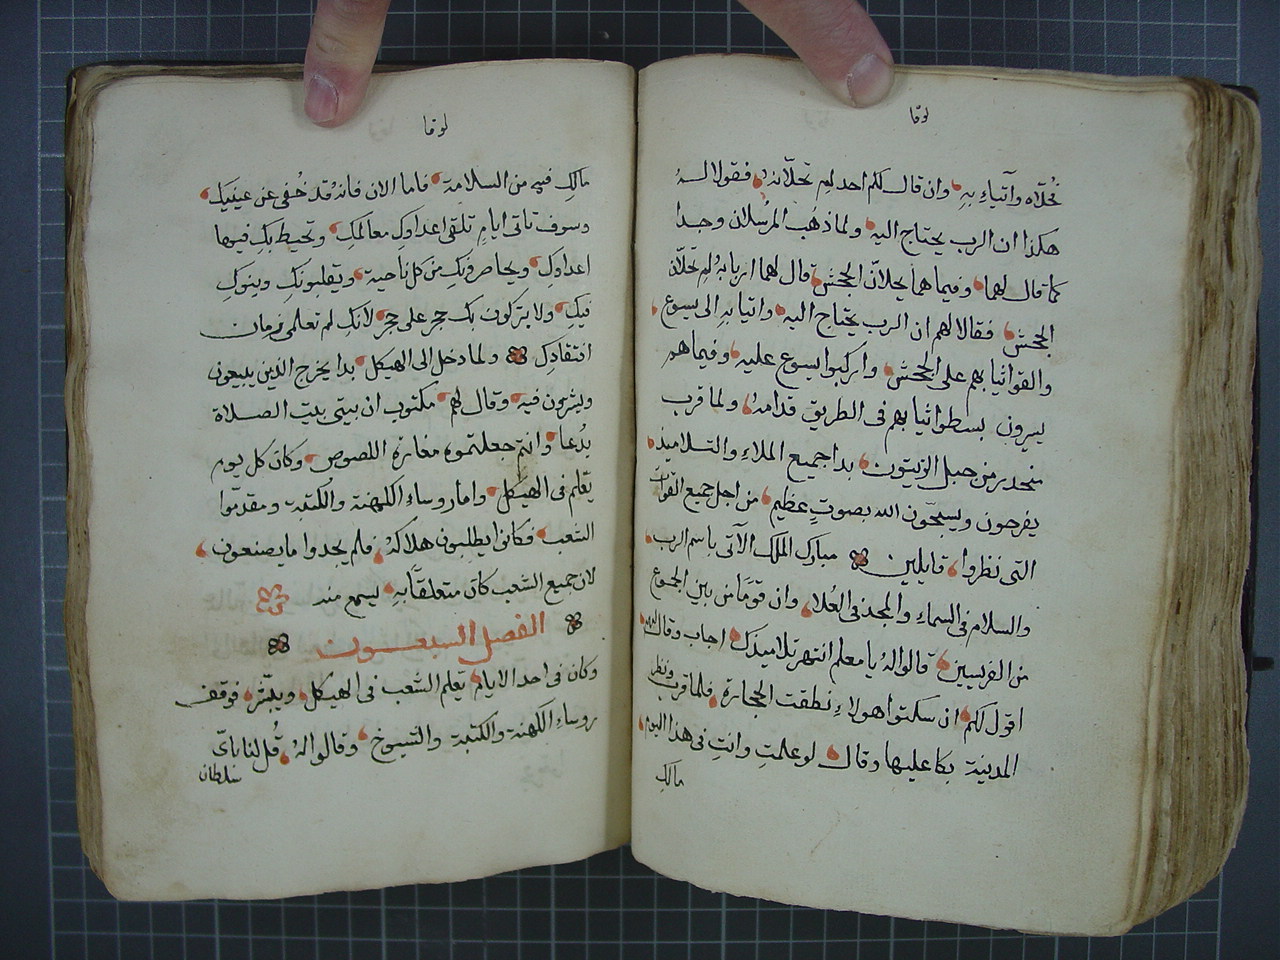 لوقا
فحُلّاه وآتياء بِهِ وان قال لكم احد لِمِ تحلّانهِ فقولا لهُ
هكذا ان الرب يحتاج اليه ولما ذهب المرسلان وجدا
كما قال لهما وفيما هما يحلّان الجحش قال لهما اربابهُ لِمِ تحلّان
الجحش فقالا لهم ان الرب يحتاج اليه واتيا بهِ الى يسوع
والقوا ثيابهم على الجحش واركبوا يسوع عليه وفيما هم
يسيرون بسطوا ثيابهم فى الطريق قدامهُ ولما قرب
منحدر من جبل الزيتون بدا جميع الملاء والتلاميذ
يفرحون ويسبحّون الله بصوتٍ عظيم من اجل جميع القوات
التى نظروا قايلين مبارك الملك الآتى باسم الرب
والسلام فى السماءِ والمجد فى العُلا وان قومًا من بين الجموع
من الفريسيين قالوا لهُ يا معلم انتهر تلاميذك اجاب وقال لهم
اقول لكم ان سكتوا هولاءِ نطقت الحجارة فلما قرب ونظر
المدينة بكا عليها وقال لو علمتِ وانتِ فى هذا اليوم
مالكِ
لوقا
مالكِ فيهِ من السلامة فاما الان فانهُ قد خُفى عن عينيكِ
وسوف تاتى ايام تلقى اعداوكِ معالمكِ وتحيط بكِ فيها
اعداوكِ ويحاصرونكِ من كل ناحية ويقلبونكِ وبنوكِ
فيكِ ولا يتركون بك حجر على حجر لانكِ لم تعلمى زمان
افتقادكِ ولما دخل الى الهيكل بدا يخرج الذين يبيعون
ويشترون فيه وقال لهم مكتوب ان بيتى بيت الصلاة
يُدعا وانتم جعلتموه مغارة اللصوص وكان كل يوم
يعّلم فى الهيكل واما روساءِ الكهنة والكتبة ومقدموا
الشعب فكانوا يطلبون هلاكهُ فلم يجدوا ما يصنعون
لان جميع الشعب كان متعلقًا بهِ ليسمع منه
الفصل السبعون
وكان فى احد الايام يعلم الشعب فى الهيكل ويبشّر فوقف
روساءِ الكهنة والكتبة والشيوخ وقالوا لهُ قُل لنا باىّ
سلطان